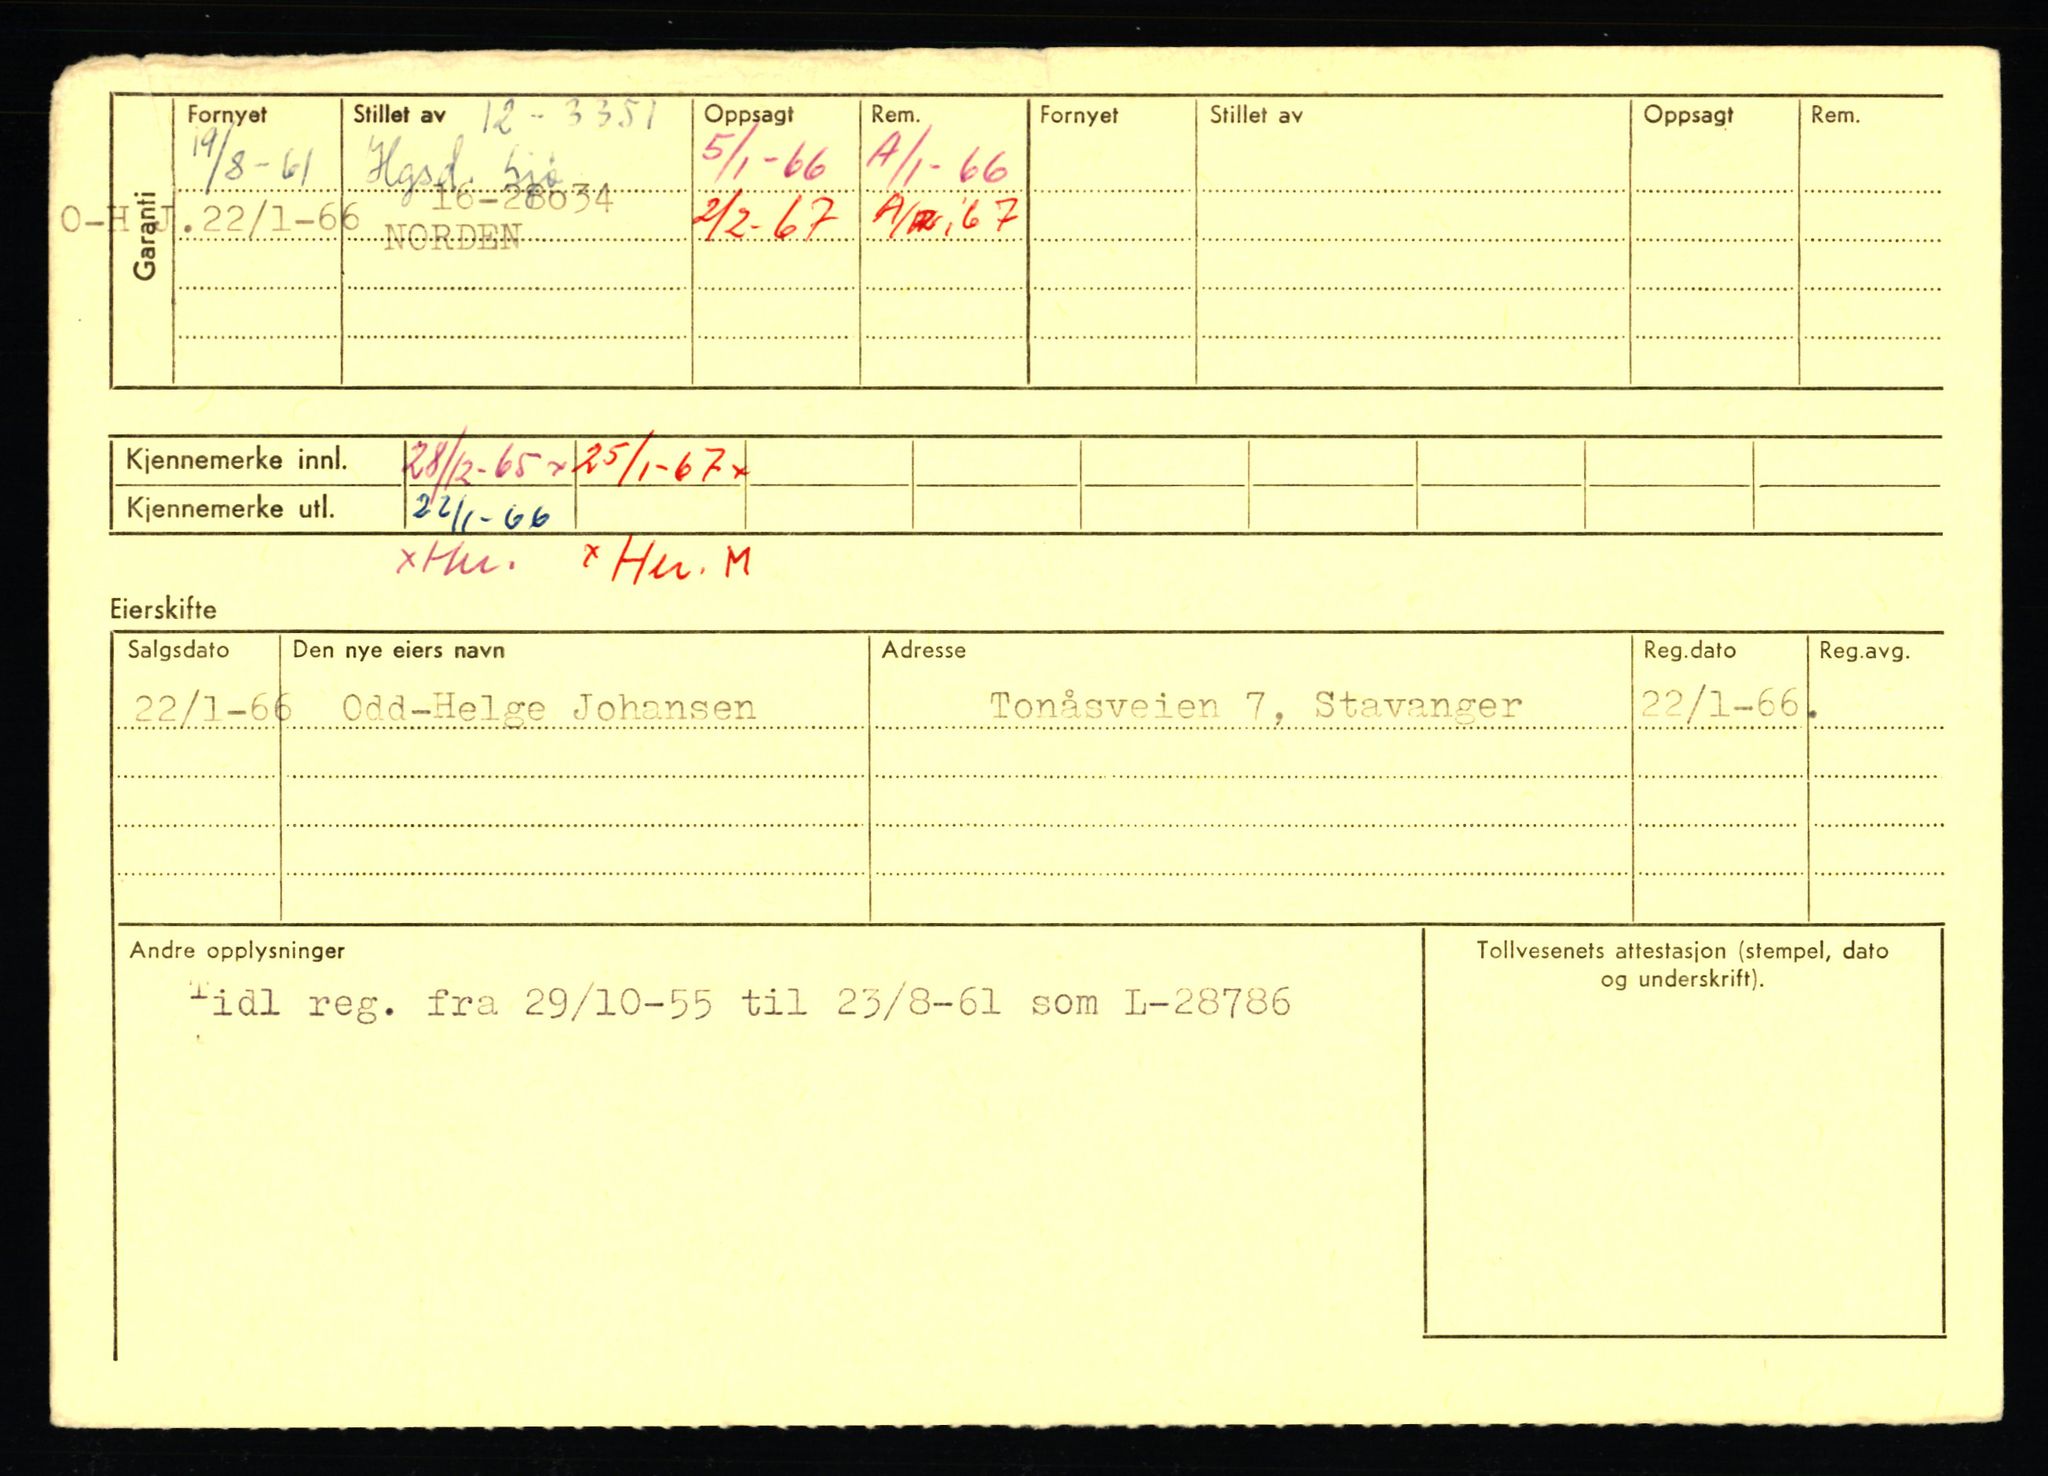 Garanti
Fornyet Stillet av 12-3351 Oppsagt Rem. Fornyet Stillet av Oppsagt Rem.
19/8-61 Hgsd. Sjø 5/1-66 A/1-66
16-28634
O-H J. 22/1-66 NORDEN 2/2-67 67
Kjennemerke innl. 28/12-65 x 25/1-67 x
Kjennemerke utl. 22/1-66
x Hu. x Hu. M
Eierskifte
Salgsdato Den nye eiers navn Adresse Reg.dato Reg.avg.
22/1-66 Odd-Helge Johansen Tonåsveien 7, Stavanger 22/1-66.
Andre opplysninger
Tidl reg. fra 29/10-55 til 23/8-61 som L-28786
Tollvesenets attestasjon (stempel, dato
og underskrift).